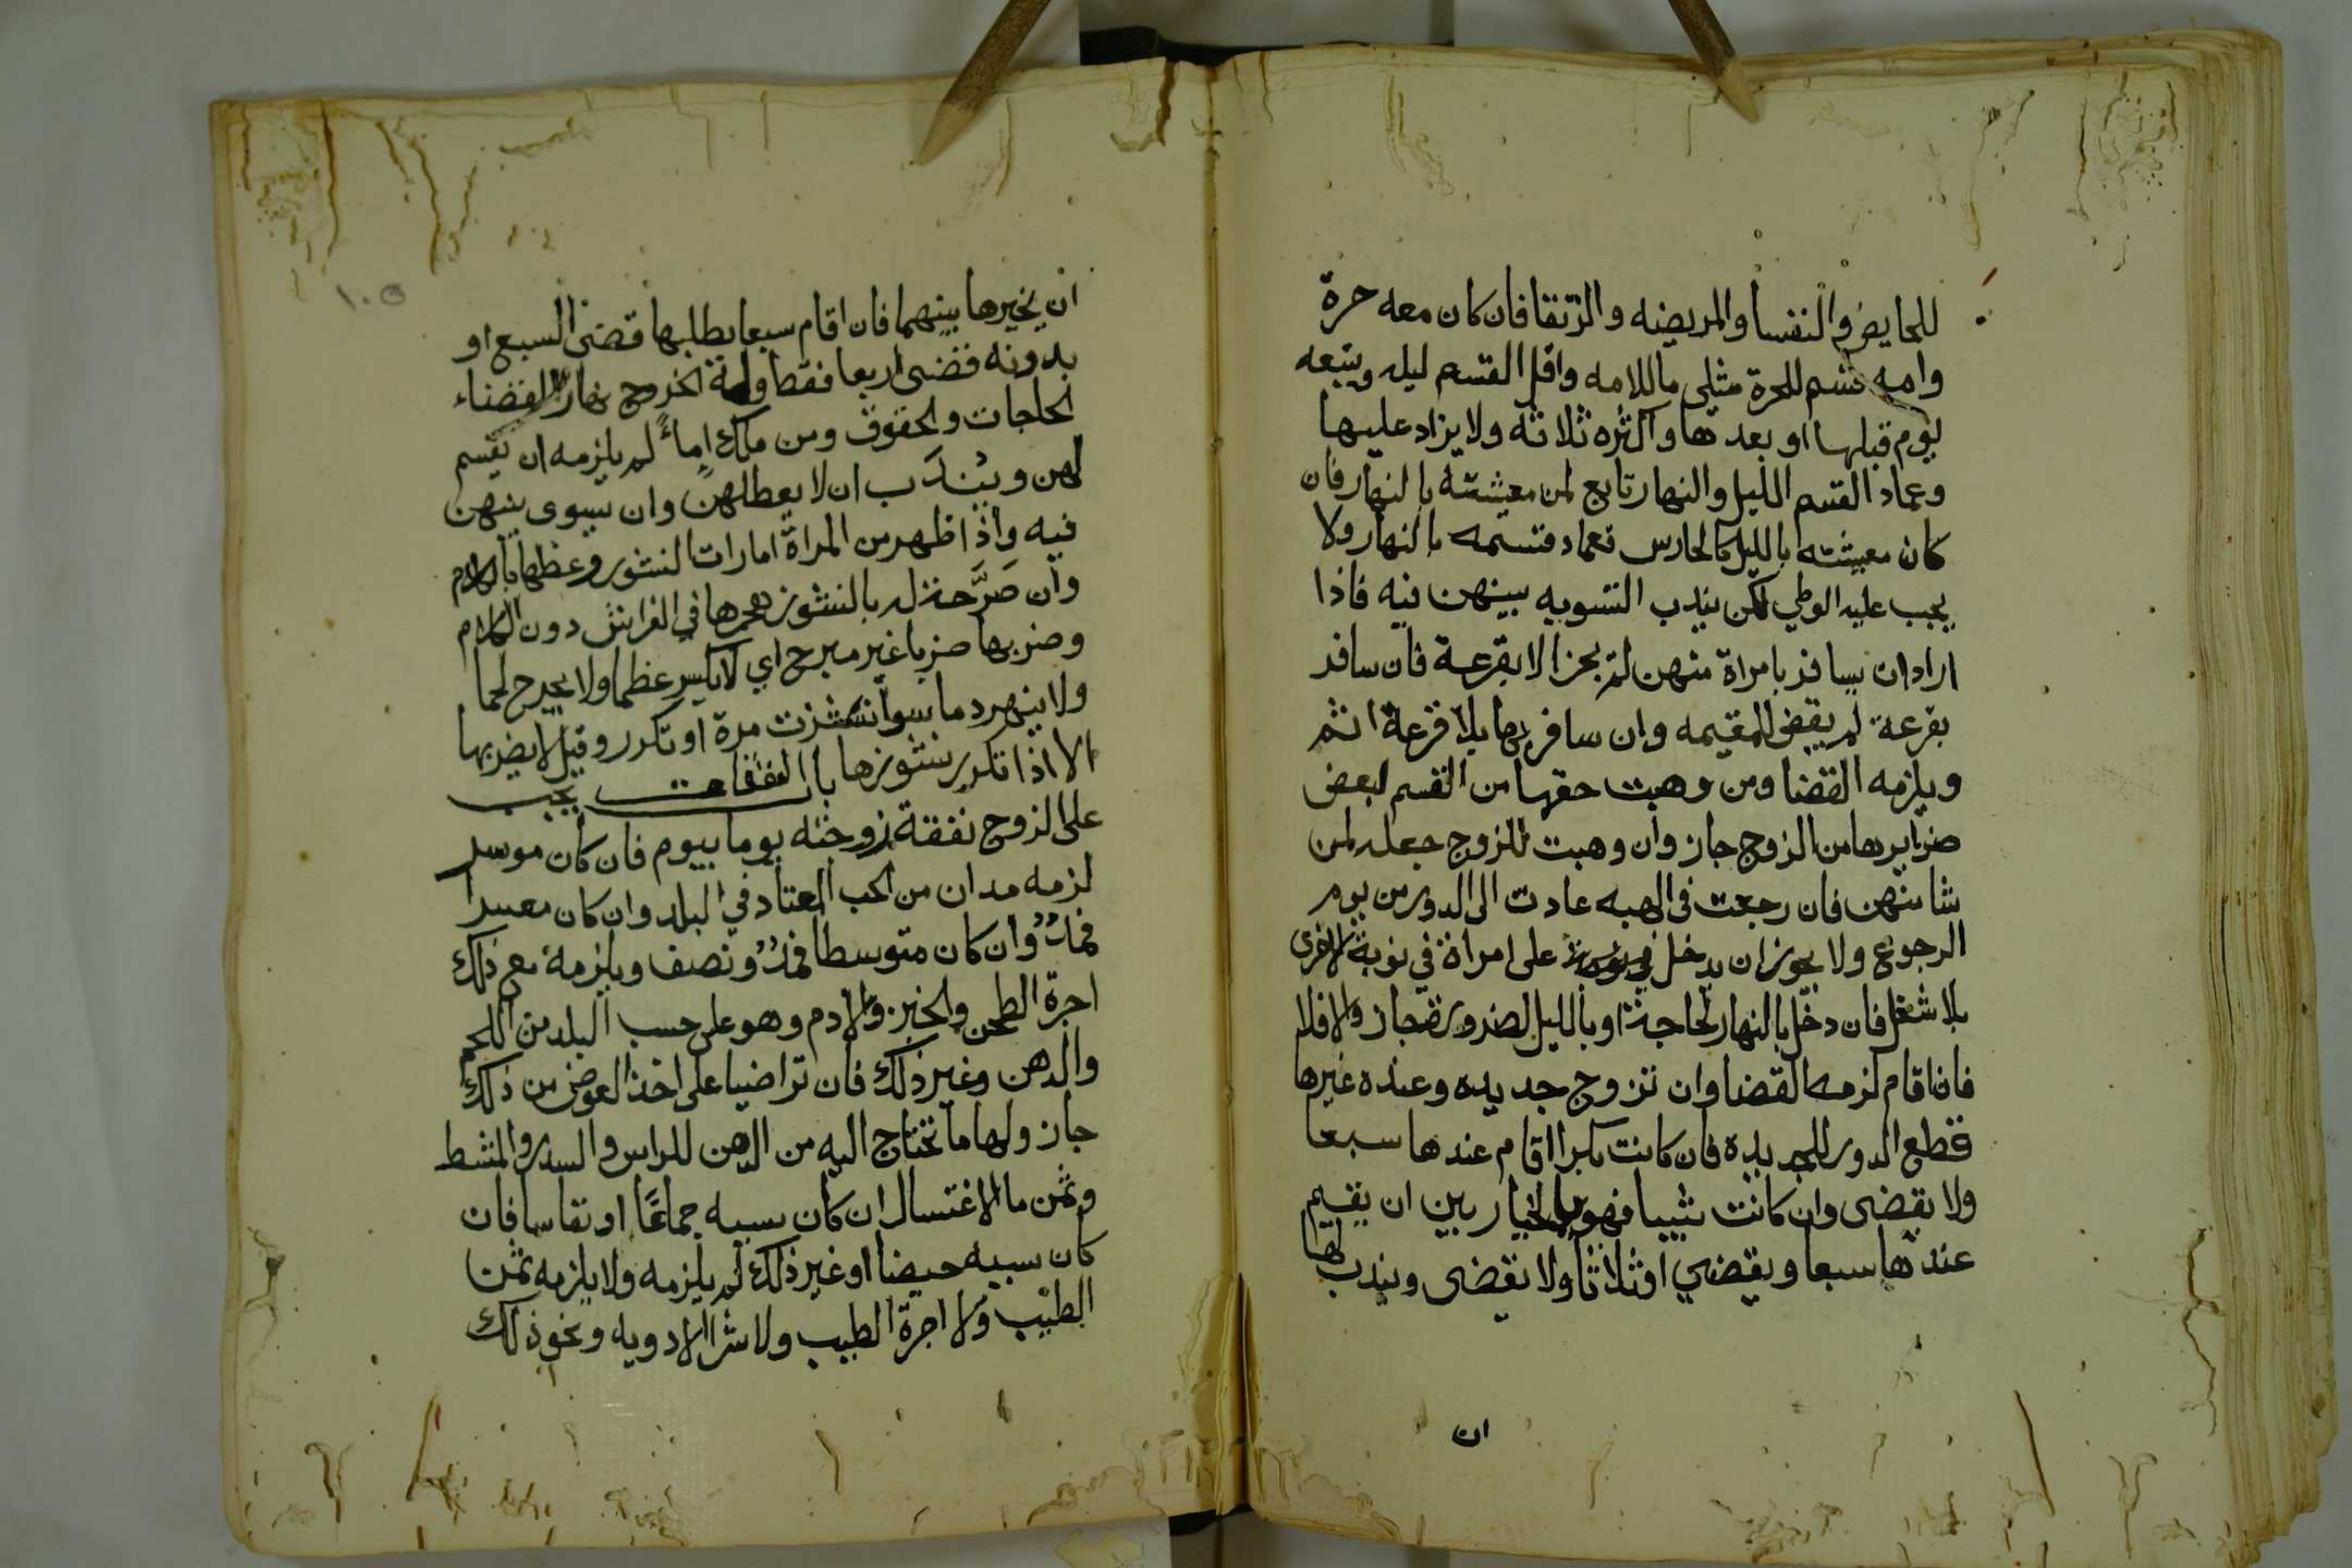 للحايض والنفسا والمريضه والرتقا فان كان معه حرة
وامه قسم للحرة مثلي ما للامه واقل القسم ليله ويتبعه
يوم قبلها او بعدها واكثره ثلاثه ولا يزاد عليها
وعماد القسم الليل والنهار تابع لمن معيشته بالنهار فان
كان معيشته بالليل كالحارس فعماد قسمه بالنهار ولا
يجب عليه الوطي لكن يندب التسويه بينهن فيه فاذا
اراد ان يسافر بامراة منهن لم يجز الا بقرعة فان سافر
بقرعة لم يقض للمقيمه وان سافر بها بلا قرعة اثم
ويلزمه القضا ومن وهبت حقها من القسم لبعض
ضرايرها من الزوج جاز وان وهبت للزوج جعله لمن
شا منهن فان رجعت في الهبه عادت الى الدور من يوم
الرجوع ولا يجوز ان يدخل على امراة في نوبة الاخرى
بلا شغل فان دخل بالنهار لحاجة او بالليل لضرورة جاز والا فلا
فان اقام لزمه القضا وان تزوج جديده وعنده غيرها
قطع الدور للجديده فان كانت بكرا اقام عندها سبعا
ولا يقضى وان كانت ثيبا فهو بالخيار بين ان يقيم
عندها سبعا ويقضي او ثلاثا ولا يقضى ويندب لها
ان
١٠٥
ان يخيرها بينهما فان اقام سبعا بطلبها قضى السبع او
بدونه فقضى اربعا فقط وله الخروج نهارا لقضاء
الحاجات والحقوق ومن ملك اماءً لم يلزمه ان يقسم
لهن ويندب ان لا يعطلهن وان يسوى بينهن
فيه واذا ظهر من المراة امارات النشوز وعظها بالكلام
وان صرَّحة له بالنشوز هجرها في الفراش دون الكلام
وضربها ضربا غير مبرح اي لا يكسر عظما ولا يجرح لحما
ولا ينهر دما سوا نشزت مرة او تكرر وقيل لا يضربها
الا اذا تكرر نشوزها باب النفقات يجب
على الزوج نفقة زوجته يوما بيوم فان كان موسر
لزمه مدان من الحب المعتاد في البلد وان كان معسرا
فمدٌ وان كان متوسطا فمدٌ ونصف ويلزمه مع ذلك
اجرة الطحن والخبز والادم وهو على حسب البلد من اللحم
والدهن وغير ذلك فان تراضيا على اخذ العوض من ذلك
جاز ولها ما تحتاج اليه من الدهن للراس والسدر والمشط
وثمن ما الاغتسال ان كان سببه جماعًا او نفاسا فان
كان سببه حيضا او غير ذلك لم يلزمه ولا يلزمه ثمن
الطيب ولا اجرة الطبيب ولا شرا الادويه ونحو ذلك